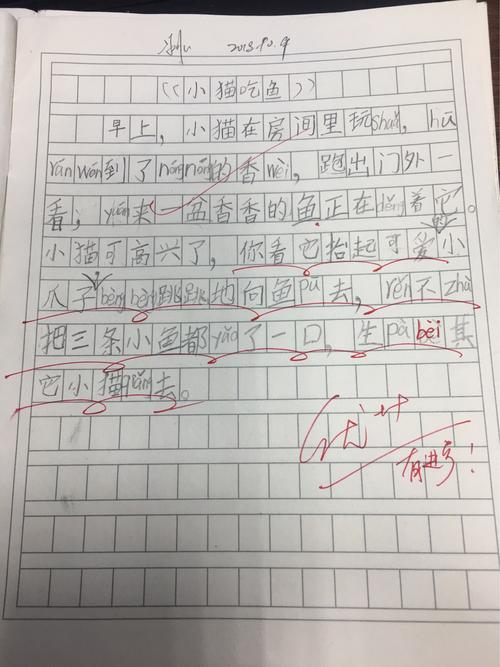 2018.10.9
《小猫吃鱼》
早上，小猫在房间里玩shuǎ，hū
rán wén到了nóng nóng的香wèi，跑出门外一
看；yuán来一盆香香的鱼正在děng着它。
小猫可高兴了，你看它抬起可爱的小
爪子bèng bèng跳跳地向鱼pū去，rěn不zhù
把三条小鱼都yǎo了一口，生pà bèi其
它小猫qiǎng去。
优+
有进步！